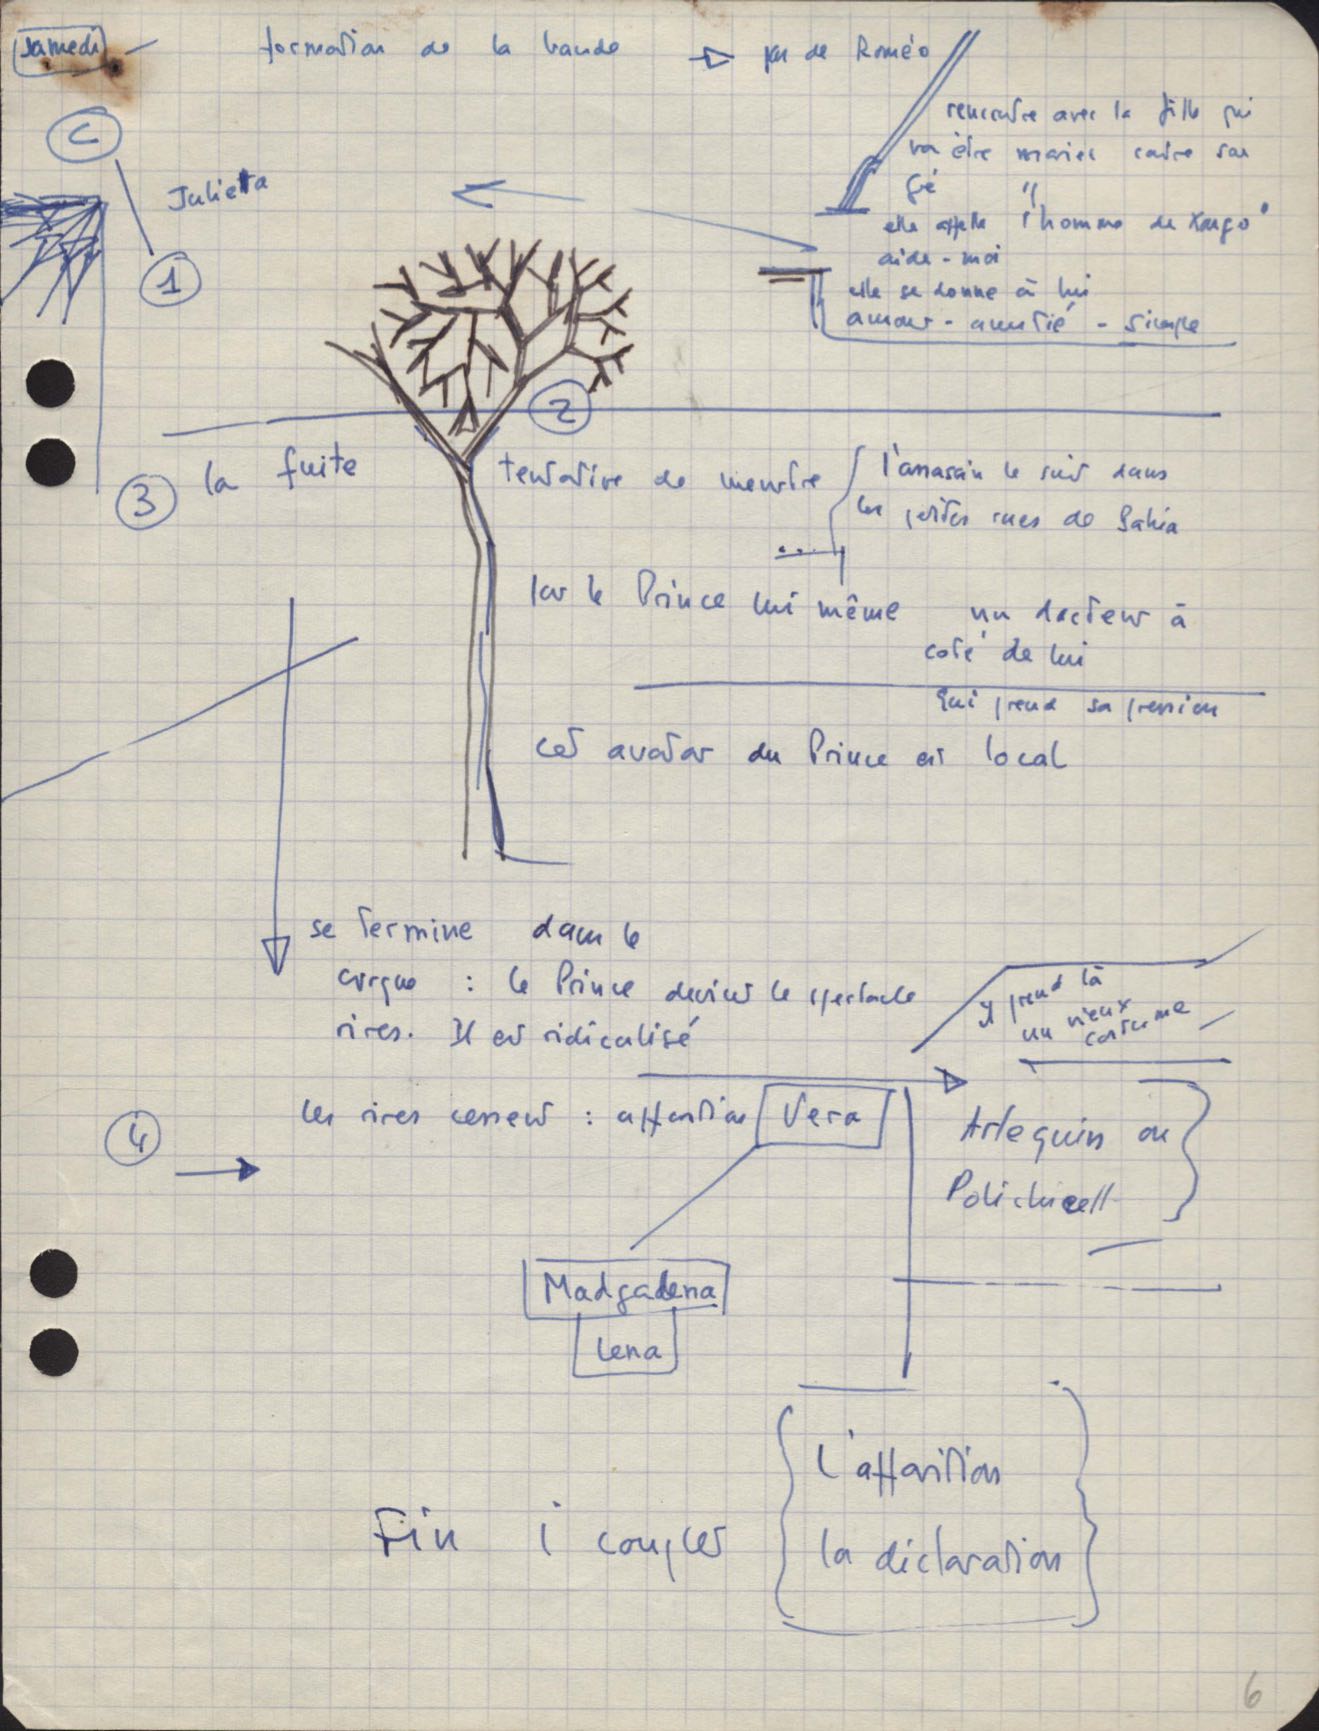 samedi
formation de la bande
jeu de Roméo
C
rencontre avec la fille qui
va être mariée contre son
gré
elle appelle "l'homme de Xango"
aide-moi
elle se donne à lui
amour - amitié - simple
Julietta
1
2
3
la fuite
tentative de meurtre
l'assassin le suit dans
les petites rues de Bahia
...
par le Prince lui même
un docteur à
coté de lui
qui prend sa pression
cet avatar du Prince est local
se termine dans le
cirque : le Prince devient le spectacle
rires. Il est ridicalisé
il prend là
un vieux
costume
4
les rires cessent : apparition
Vera
Arlequin ou
Polichinell
Madgadena
Lena
Fin
couplet
L'apparition
la déclaration
6